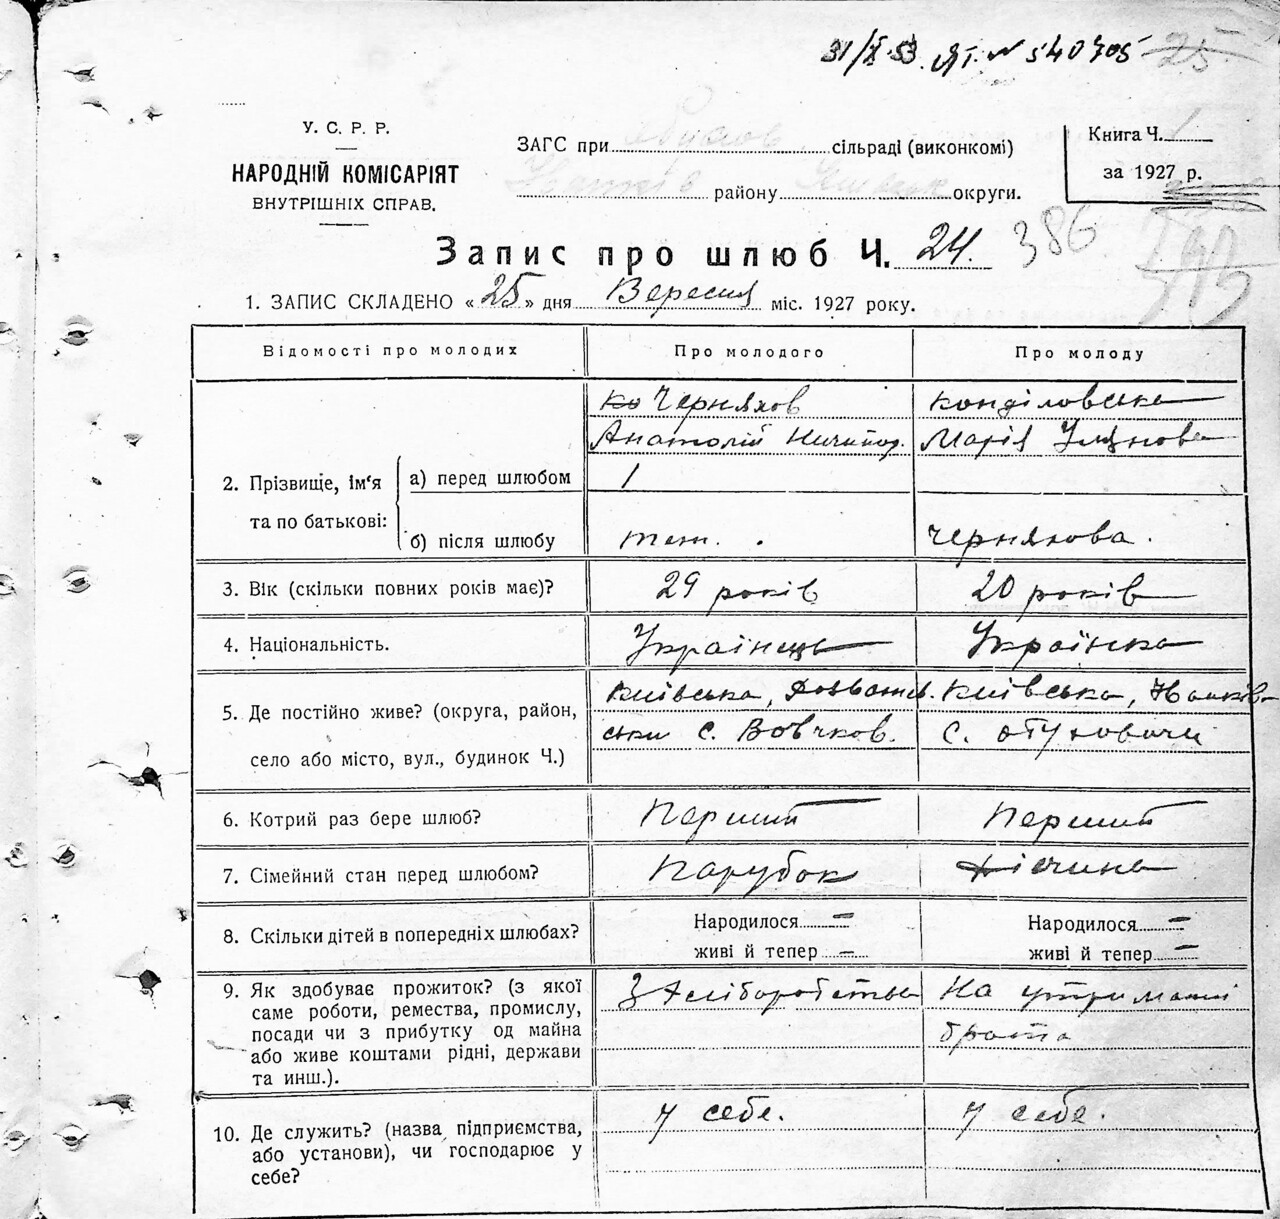 31/X 53. ЯТ. № 540705 25
У. С. Р. Р.
НАРОДНІЙ КОМІСАРІЯТ
ВНУТРІШНІХ СПРАВ.
ЗАГС при сільраді (виконкомі)
району округи.
Книга Ч. 1
за 1927 р.
Запис про шлюб Ч. 24. 386
1. ЗАПИС СКЛАДЕНО «25» дня Вересня міс. 1927 року.
Відомості про молодих Про молодого Про молоду
2. Прізвище, ім‘я та по батькові:
а) перед шлюбом
Черняхов
Анатолій Ничипор.
Конділовська
Марія
б) після шлюбу теж. Черняхова.
3. Вік (скільки повних років має)? 29 років 20 років
4. Національність. Українець Українка
5. Де постійно живе? (округа, район,
село або місто, вул., будинок Ч.)
Київська,
с. Вовчков.
Київська,
с.
6. Котрий раз бере шлюб? Перший Перший
7. Сімейний стан перед шлюбом? Парубок Дівчина
8. Скільки дітей в попередніх шлюбах? Народилося – Народилося –
живі й тепер – живі й тепер –
9. Як здобуває прожиток? (з якої
саме роботи, ремества, промислу,
посади чи з прибутку од майна
або живе коштами рідні, держави
та инш.).
З хліборобства
На утриманні
брата
10. Де служить? (назва підприємства,
або установи), чи господарює у
себе?
у себе.
у себе.